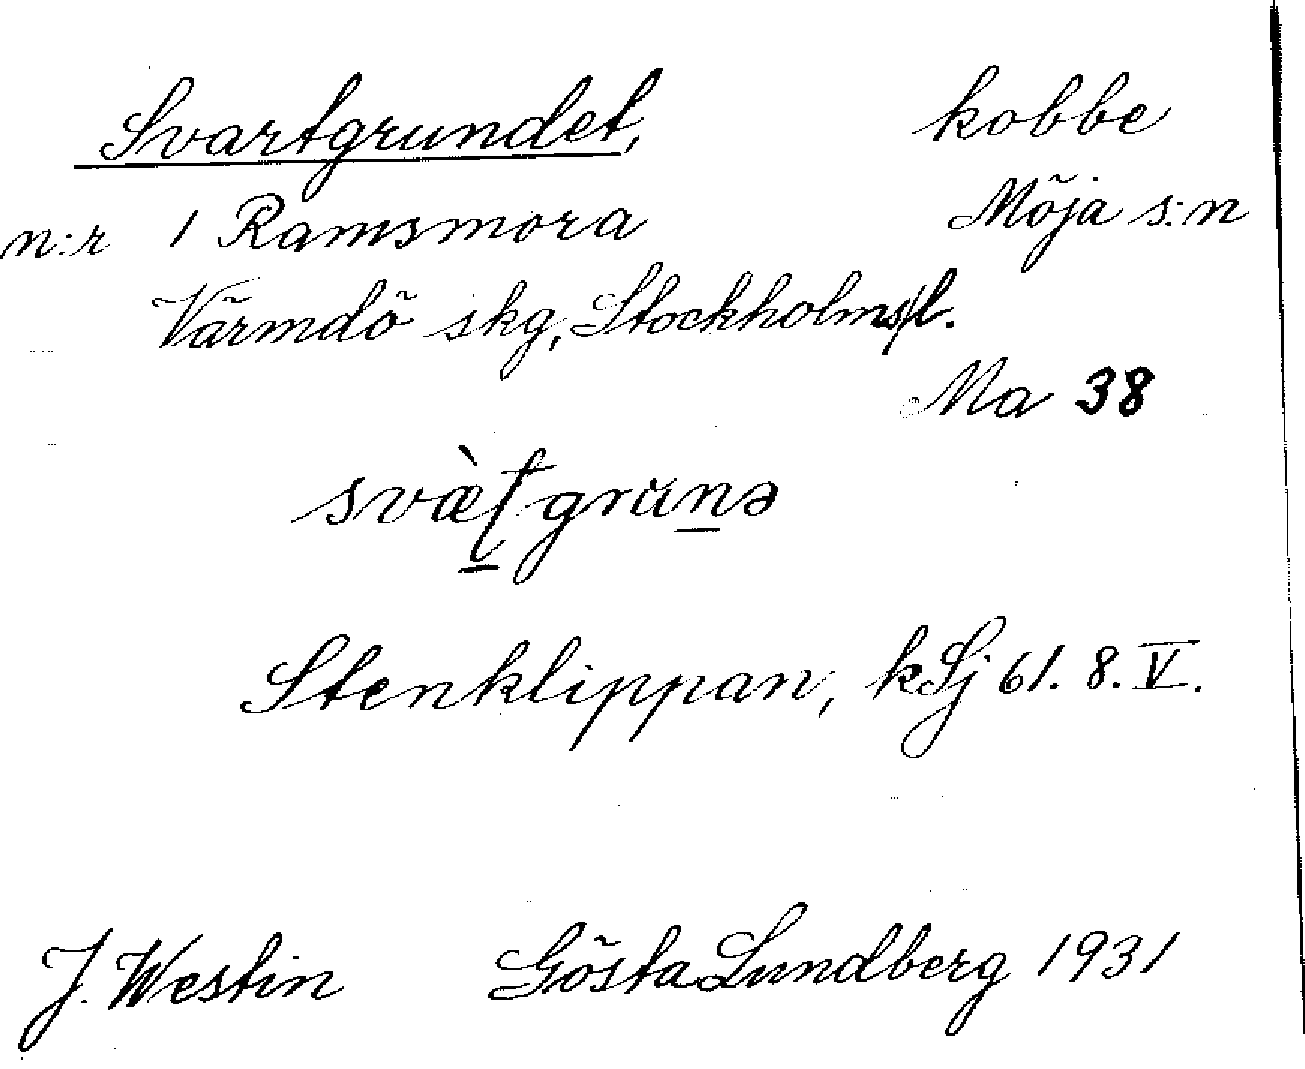 Svartgrundet, kobbe
n:r 1 Ramsmora Möja s:n
Värmdö skg, Stockholms l.
Ma 38
svæ̀ṯgrünə
Stenklippan, kSj 61. 8. V.
J. Westin Gösta Lundberg 1931